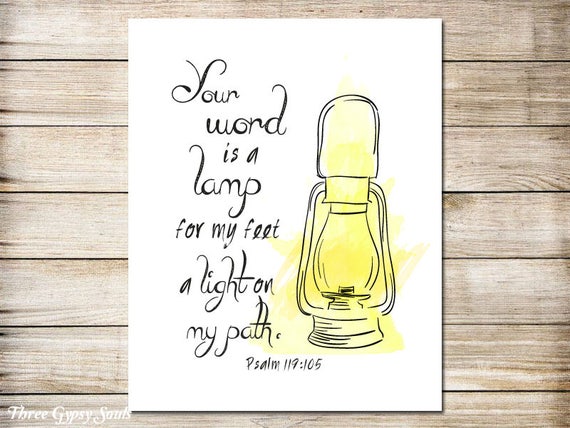 Your
word
is a
lamp
for my feet
a light on
my path.
Psalm 119:105
Three Gypsy Souls